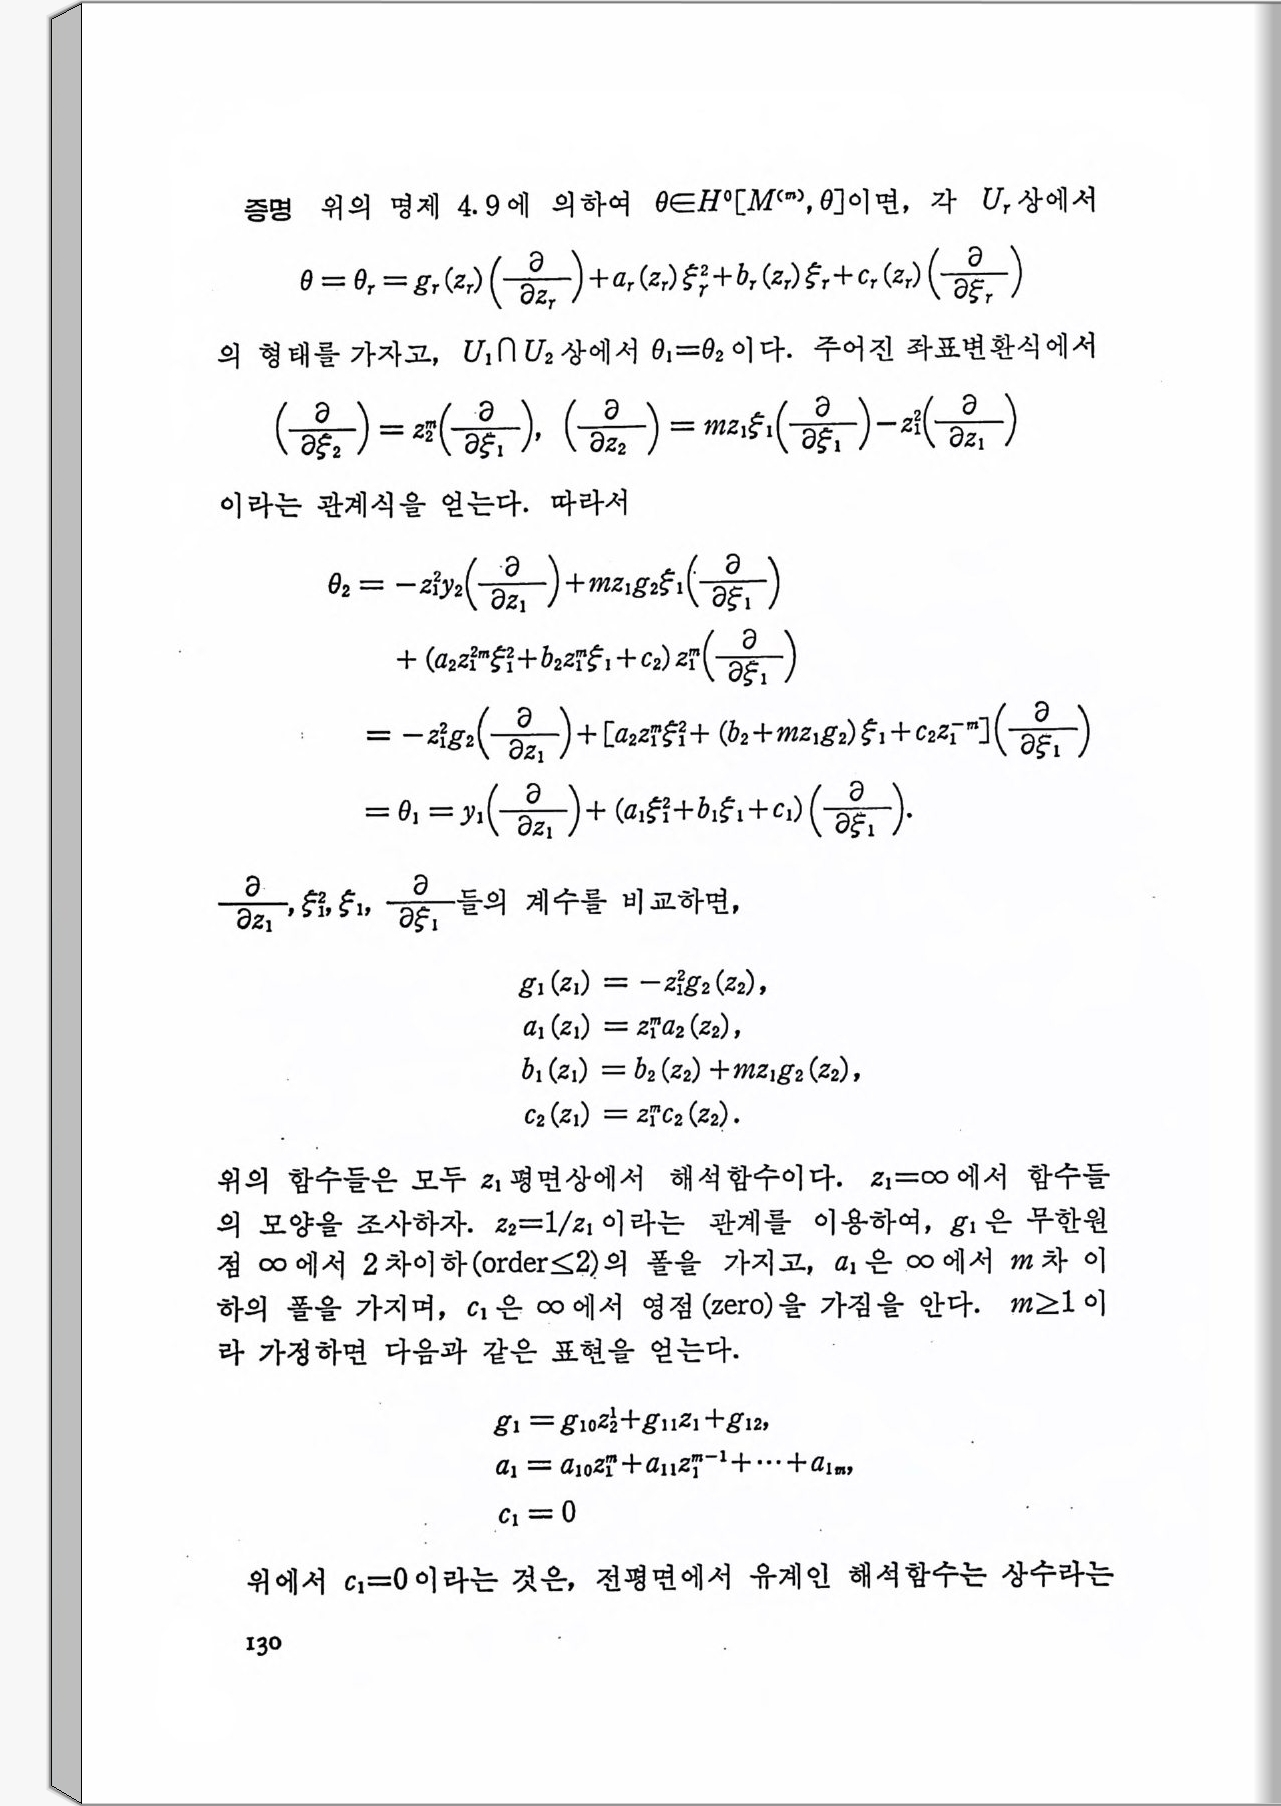 증명 위의 명제 4.9에 의하여 θ∈H⁰[M⁽ᵐ⁾, θ]이면, 각 Uᵣ상에서
θ = θᵣ = gᵣ(zᵣ)(∂/∂zᵣ)+aᵣ(zᵣ)ξᵣ²+bᵣ(zᵣ)ξᵣ+cᵣ(zᵣ)(∂/∂ξᵣ)
의 형태를 가지고, U₁∩U₂상에서 θ₁=θ₂이다. 주어진 좌표변환식에서
(∂/∂ξ₂) = z₂ᵐ(∂/∂ξ₁), (∂/∂z₂) = mz₁ξ₁(∂/∂ξ₁)−z₁²(∂/∂z₁)
이라는 관계식을 얻는다. 따라서
θ₂ = −z₁²y₂(∂/∂z₁)+mz₁g₂ξ₁(∂/∂ξ₁)
+ (a₂z₁²ᵐξ₁²+b₂z₁ᵐξ₁+c₂) z₁ᵐ(∂/∂ξ₁)
= −z₁²g₂(∂/∂z₁)+[a₂z₁ᵐξ₁²+ (b₂+mz₁g₂)ξ₁+c₂z₁⁻ᵐ](∂/∂ξ₁)
= θ₁ = y₁(∂/∂z₁)+ (a₁ξ₁²+b₁ξ₁+c₁)(∂/∂ξ₁).
∂/∂z₁, ξ₁², ξ₁, ∂/∂ξ₁들의 계수를 비교하면,
g₁(z₁) = −z₁²g₂(z₂),
a₁(z₁) = z₁ᵐa₂(z₂),
b₁(z₁) = b₂(z₂)+mz₁g₂(z₂),
c₂(z₁) = z₁ᵐc₂(z₂).
위의 함수들은 모두 z₁평면상에서 해석함수이다. z₁=∞에서 함수들
의 모양을 조사하자. z₂=1/z₁이라는 관계를 이용하여, g₁은 무한원
점 ∞에서 2차이하(order≤2)의 폴을 가지고, a₁은 ∞에서 m차 이
하의 폴을 가지며, c₁은 ∞에서 영점(zero)을 가짐을 안다. m≥1이
라 가정하면 다음과 같은 표현을 얻는다.
g₁ = g₁₀z₂¹+g₁₁z₁+g₁₂,
a₁ = a₁₀z₁ᵐ+a₁₁z₁ᵐ⁻¹+⋯+a₁ₘ,
c₁ = 0
위에서 c₁=0이라는 것은, 전평면에서 유계인 해석함수는 상수라는
130